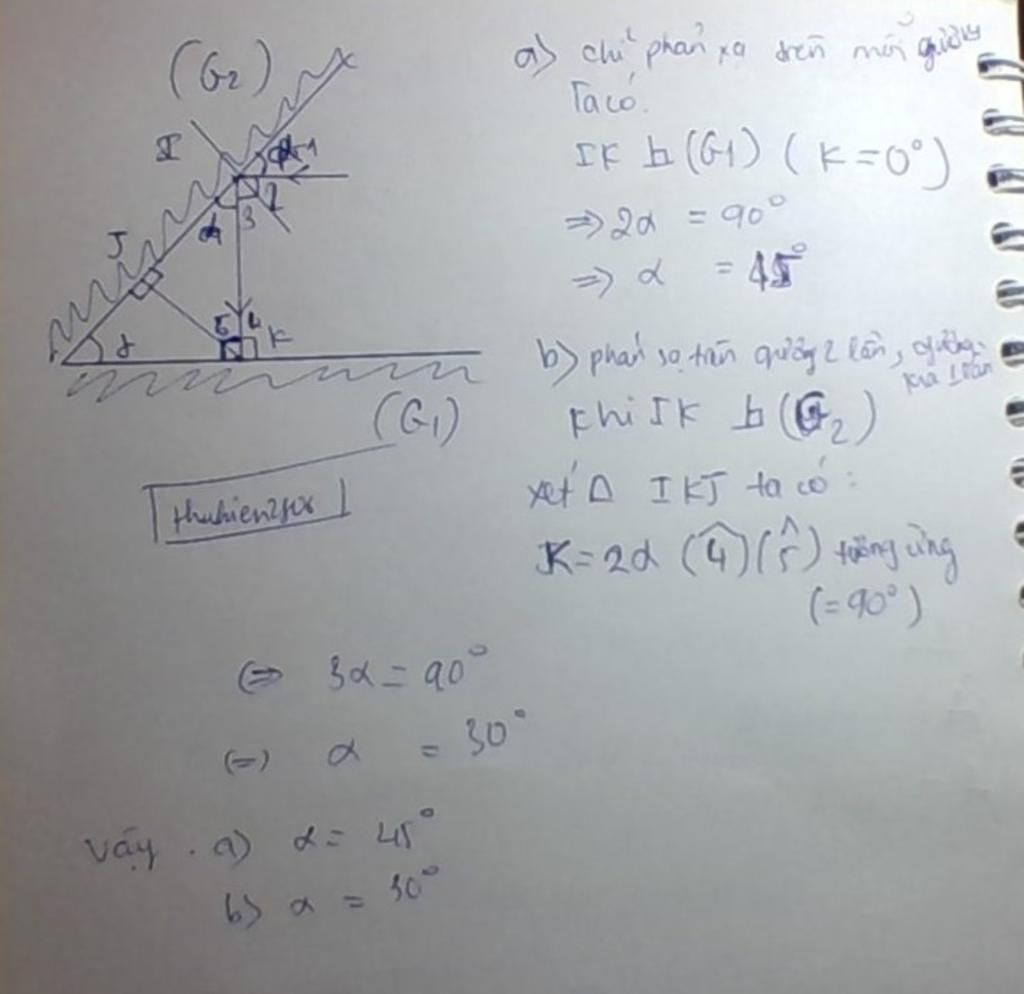 (G2)
I
α 1
2
α 3
J
5 4 K
α
(G1)
thuhien2406
a) chỉ phản xạ trên mỗi gương
Ta có.
IK ⊥ (G1) ( K = 0°)
=> 2α = 90°
=> α = 45°
b) phản xạ trên gương 2 lần, gương
kia 1 lần
khi IK ⊥ (G2)
xét Δ IKJ ta có :
K = 2α (4̂) (5̂) tương ứng
(= 90°)
(=> 3α = 90°
(=) α = 30°
Vậy . a) α = 45°
b) α = 30°